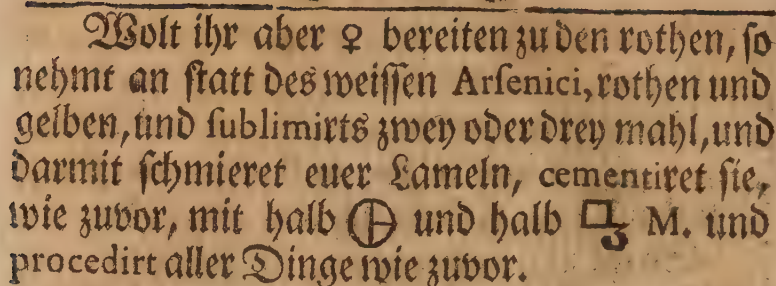 Wolt ihr aber ♀ bereiten zu den rothen, so
nehmt an statt des weissen Arsenici, rothen und
gelben, und sublimirts zwey oder drey mahl, und
darmit schmieret euer Lameln, cementiret sie,
wie zuvor, mit halb 🜨 und halb M. und
procedirt aller Dinge wie zuvor.